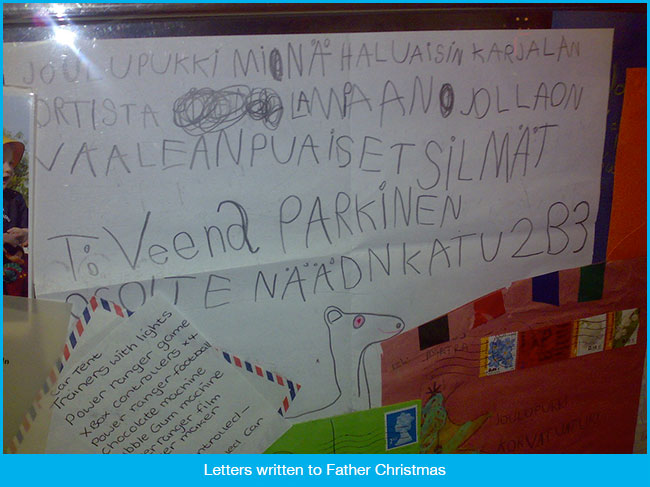 JOULUPUKKI MIONÄ HALUAISIN KARJALAN
ORTISTA LAMPAAN JOLLAON
VAALEANPUAISET SILMÄT
To Veena PARKINEN
OSOITE NÄÄDNKATU 2B3
car Tent
Trainers with lights
Power ranger game
XBox controllers x4
Power ranger football
chocolate machine
Bubble Gum machine
ranger film
maker
controlled
car
JOULUPUKKI
KORVATUNTURI
Letters written to Father Christmas